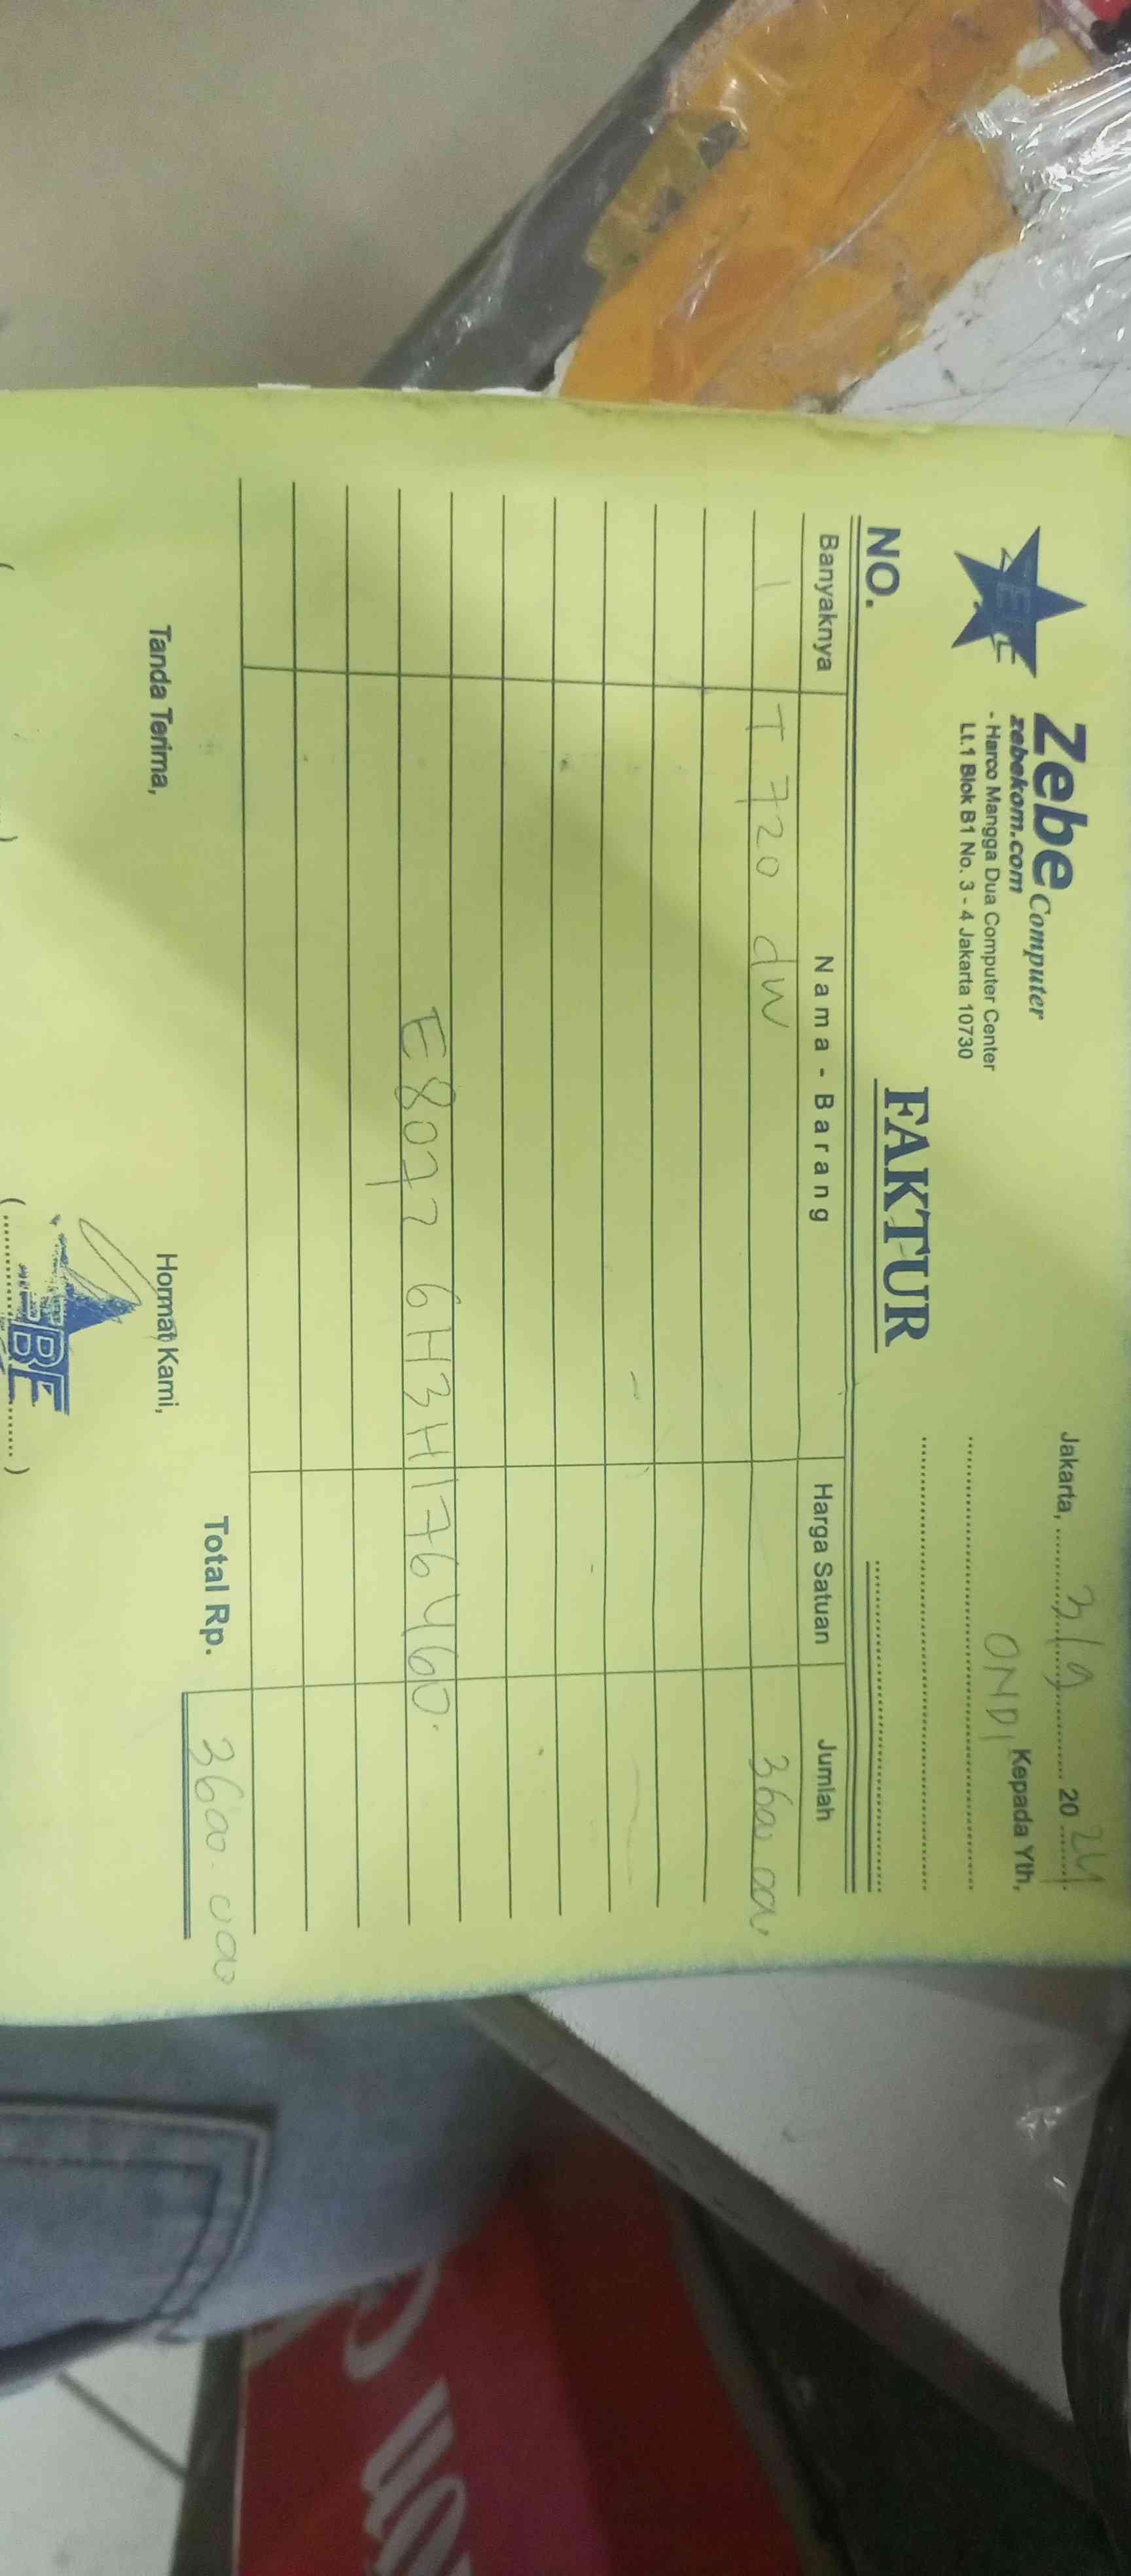 Zebe Computer
zebekom.com
- Harco Mangga Dua Computer Center
Lt.1 Blok B1 No. 3 - 4 Jakarta 10730
Jakarta, 3/9 20 24
Kepada Yth,
ONDI
FAKTUR
NO.
Banyaknya Nama - Barang Harga Satuan Jumlah
1 T 720 dw 3600 000
E8077 6H3H176460.
Total Rp. 3600.000
Tanda Terima, Hormat Kami,
( ) ( )